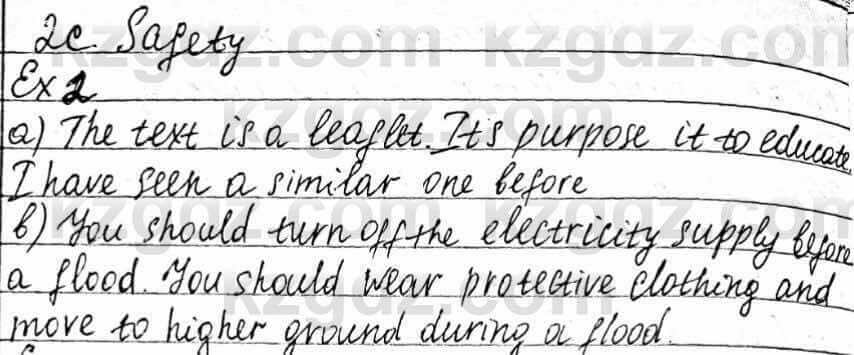 2c Safety
Ex 2
a) The text is a leaflet. It's purpose it to educate.
I have seen a similar one before
b) You should turn off the electricity supply before
a flood. You should wear protective clothing and
move to higher ground during a flood.
kzgdz.com